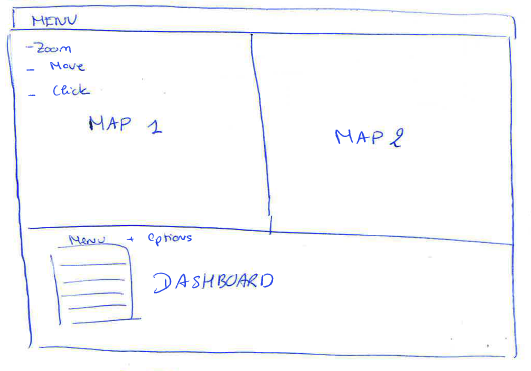 MENU
- Zoom
- Move
- Click
MAP 1
MAP 2
Menu + Options
DASHBOARD